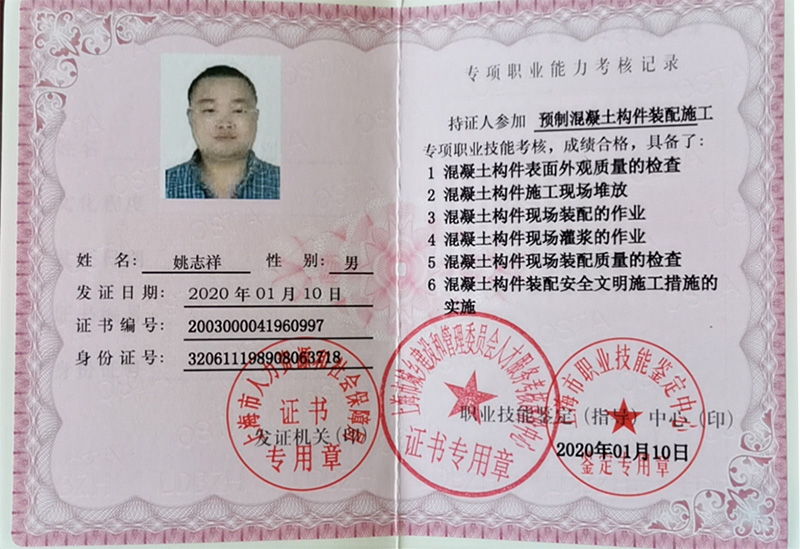 姓 名: 姚志祥 性 别: 男
发证日期: 2020 年 01 月 10 日
证书编号: 2003000041960997
身份证号: 320611198908063718
发证机关(印)
上海市人力资源和社会保障局
证书
专用章
专项职业能力考核记录
持证人参加 预制混凝土构件装配施工
专项职业技能考核，成绩合格，具备了：
1 混凝土构件表面外观质量的检查
2 混凝土构件施工现场堆放
3 混凝土构件现场装配的作业
4 混凝土构件现场灌浆的作业
5 混凝土构件现场装配质量的检查
6 混凝土构件装配安全文明施工措施的
实施
上海市城乡建设和管理委员会人才服务考核中心
证书专用章
职业技能鉴定(指导)中心(印)
2020年01月10日
上海市职业技能鉴定中心
鉴定专用章